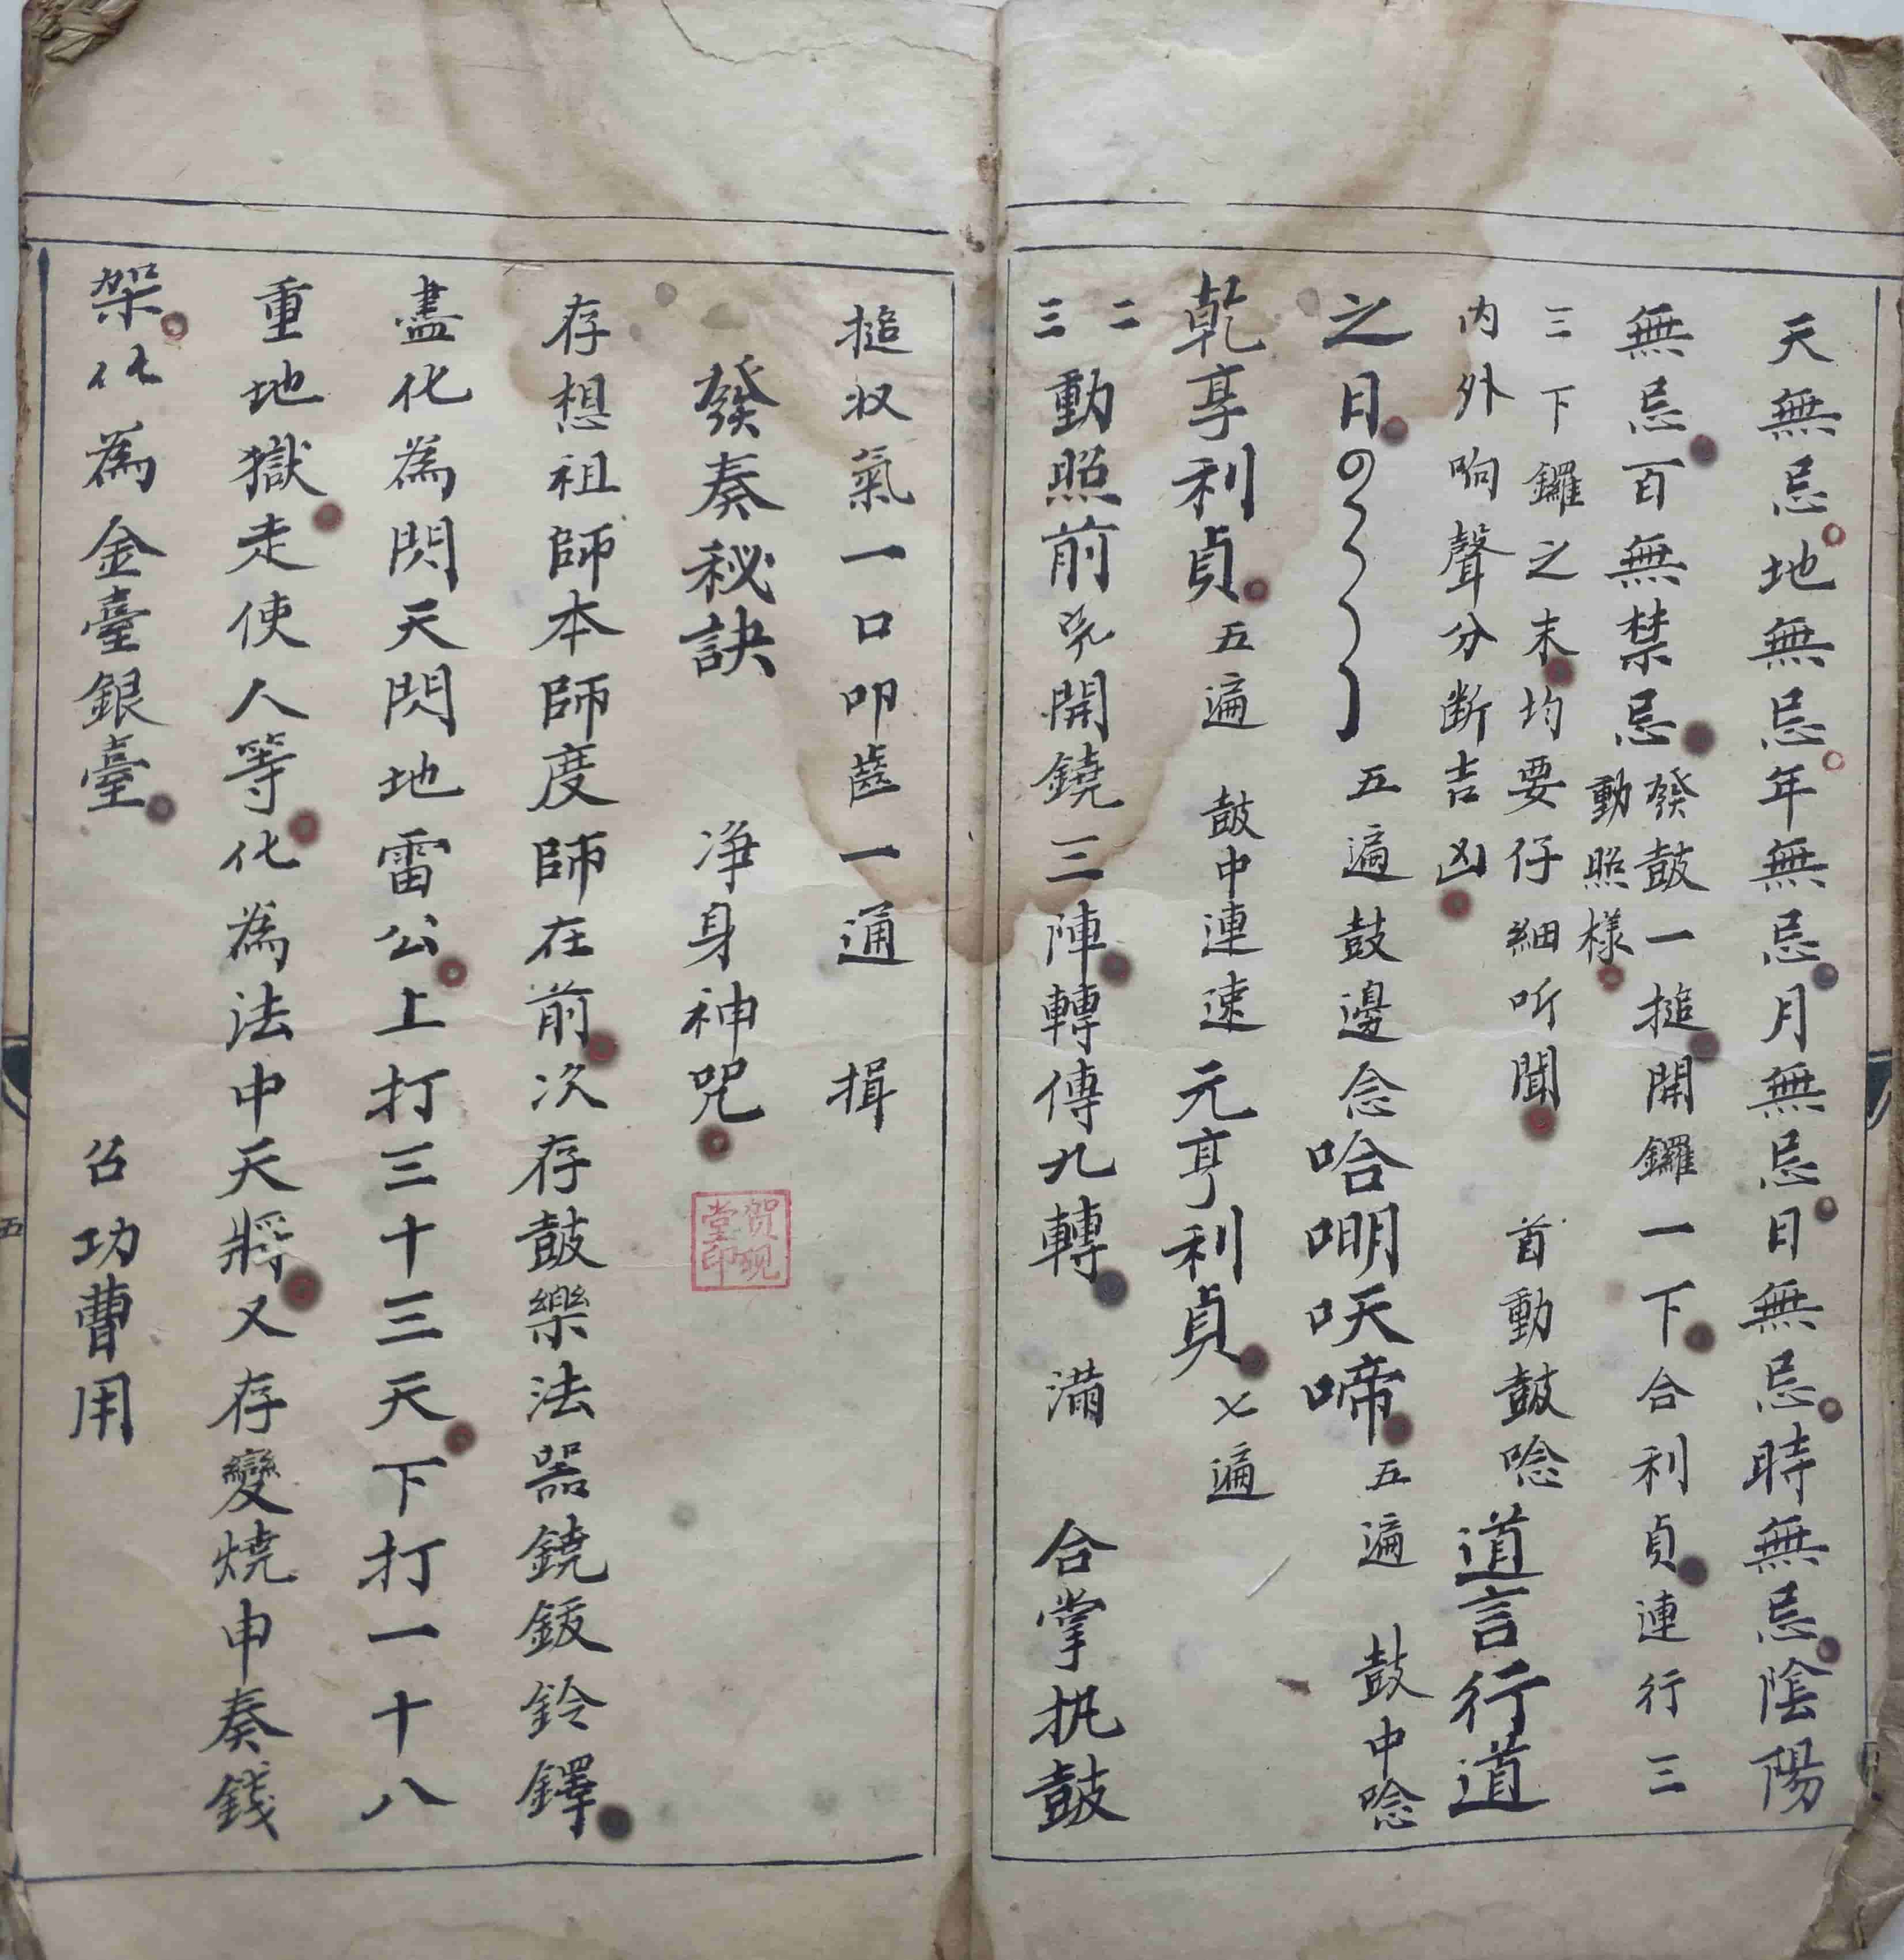 天無忌地無忌年無忌月無忌日無忌時無忌陰陽
無忌百無禁忌
發鼓一搥開鑼一下合利貞連行三
動照樣
三下鑼之末均要仔細听聞
內外响聲分断吉凶
首動鼓唸
道言行道
之月
五遍鼓邊念哈𠵼呋啼五遍 鼓中唸
乾亨利貞五遍 鼓中連速元亨利貞七遍
二
三
動照前 開鐃三陣轉傳九轉 滿 合掌执鼓
搥収氣一口叩齒一通 揖
發奏秘訣 净身神咒
贺砚堂印
存想祖師本師度師在前次存鼓樂法器鐃鈸鈴鐸
盡化為閃天閃地雷公上打三十三天下打一十八
重地獄走使人等化為法中天將又存變燒申奏錢
架化為金臺銀臺 召功曹用
五